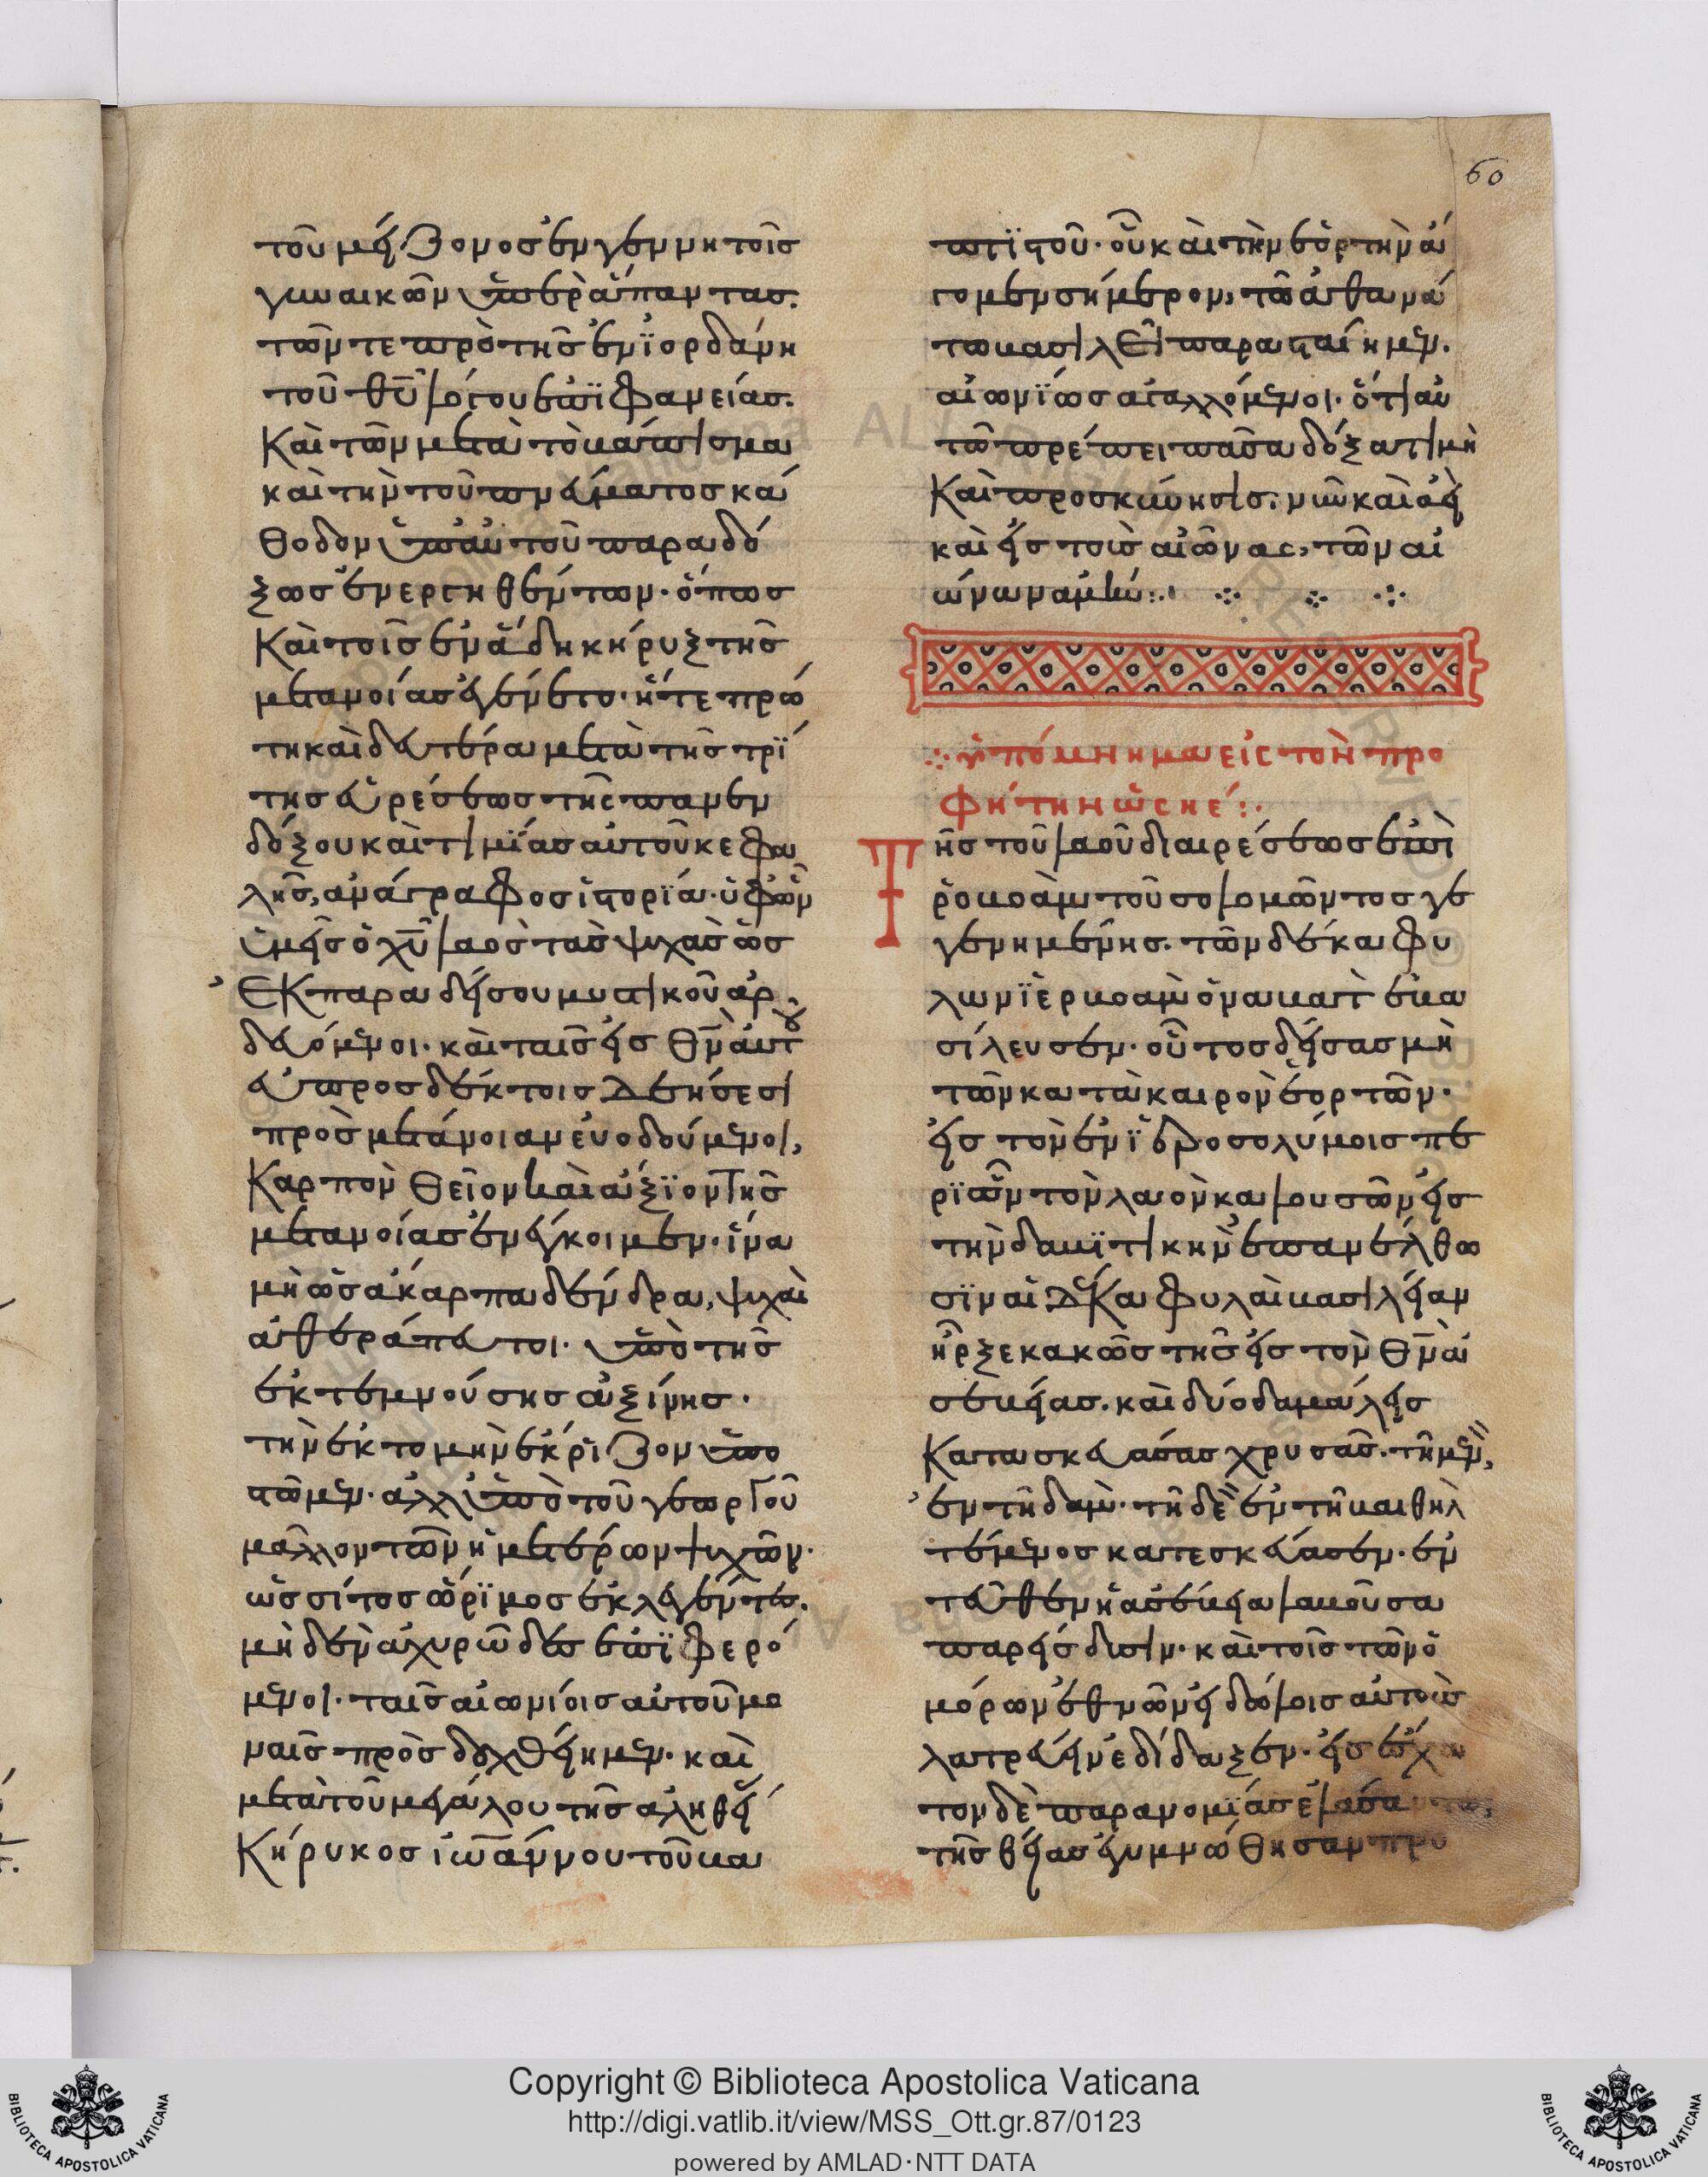 60
τοῦ μείζονος ἐν γεννητοῖς
γυναικῶν ὑπὲρ ἅπαντας.
τῶν τε πρὸ τῆς ἐν ϊορδάνη
τοῦ θυ λόγου ἐπϊφανείας.
Καὶ τῶν μετὰ τὸ βάπτισμα
καὶ τὴν τοῦ πνεύματος κά
θοδον ὑπ' αὐτοῦ παραδό
ξως ἐνεργηθέντων· ὅπως
Καὶ τοῖς ἐν ἅδη κήρυξ τῆς
μετανοίας ἐγένετο· ἥ τε πρώ
τη καὶ δευτέρα μετὰ τῆς τρΐ
της εὑρέσεως τῆς πανεν
δόξου καὶ τιμΐας αὐτοῦ κεφα
λῆς, ἀνάγραφος ἱστορΐα· ὑφ' ὧν
ὑμεῖς ὁ χυ λαὸς τὰς ψυχὰς ὡς
ἐκ παραδείσου μυστικοῦ ἀρ
δευόμενοι· καὶ ταῖς εἰς θν αὐτοῦ
εὐπροσδέκτοις δεήσεσι
πρὸς μετάνοιαν εὐοδούμενοι,
Καρπὸν θεῖον καὶ ἄξϊον τῆς
μετανοίας ἐνέγκοιμεν· ἵνα
μὴ ὡς ἄκαρπα δένδρα, ψυχαὶ
ἀθεράπευτοι· ὑπὸ τῆς
ἐκτεμνούσης ἀξίνης·
τὴν ἐκτομὴν ἐκρὶζον ὑπο
στῶμεν· ἀλλ' ὑπὸ τοῦ γεωργοῦ
μᾶλλον τῶν ἡμετέρων ψυχῶν·
ὡς σίτος ὥρϊμος ἐκλεγέντες.
μηδὲν ἀχυρῶδες ἐπϊφερό
μενοι· ταῖς αἰωνίοις αὐτοῦ μο
ναῖς προσδοχθείημεν· καὶ
μετὰ τοῦ μεγάλου τῆς ἀληθεί
Κήρυκος ἰωάννου τοῦ βα
πτϊστοῦ· οὗ καὶ τὴν ἑορτὴν ἄ
γομεν σήμερον, τῶ ἀθανά
τω βασιλεῖ παρασταίημεν.
αἰωνΐως ἀγαλλόμενοι· ὅτι αὐ
τῶ πρέπει πᾶσα δόξα τιμὴ
Καὶ προσκύνησις· νῦν καὶ ἀεὶ
καὶ εἰς τοὺς αἰῶνας, τῶν αἰ
ώνων ἀμήν:·
ὑπόμνημα εἰς τὸν προ
φήτην ὡσηέ:·
Τῆς τοῦ λαοῦ διαιρέσεως ἐπὶ
ῥοβοὰμ τοῦ σολομῶντος γε
γενημένης· τῶν δέκα φυ
λῶν ϊεροβοὰμ ὁ ναβὰτ ἐβα
σίλευσεν· οὗτος δείσας μὴ
τῶν κατὰ καιρὸν ἑορτῶν·
εἰς τὸν ἐν ϊεροσολύμοις πε
ρϊὼν τὸν λαὸν καλουσῶν εἰς
τὴν δαβϊτικὴν ἐπανέλθω
σϊν αἱ δέκα φυλαὶ βασιλείαν
ἦρξε κακῶς τῆς εἰς τὸν θν ἀ
σεβείας· καὶ δύο δαμάλεις
Κατασκευάσας χρυσᾶς· τῆ μὲν,
ἐν τῆ δάν· τῆ δὲ ἐν τῆ βαιθὴλ
τέμενος κατεσκεύασεν· ἐν
τεῦθεν ἡ ἀσέβεια λαβοῦσα
παρείσδυσιν· καὶ τοῖς τῶν ὁ
μόρων ἐθνῶν εἰδώλοις αὐτοὺς
λατρεύειν ἐδίδαξεν· εἰς ἔσχα
τον δὲ παρανομΐας ἐλάσαντες,
τῆς θείας ἐγυμνώθησαν προ
Copyright © Biblioteca Apostolica Vaticana
http://digi.vatlib.it/view/MSS_Ott.gr.87/0123
powered by AMLAD·NTT DATA
BIBLIOTECA APOSTOLICA VATICANA
BIBLIOTECA APOSTOLICA VATICANA